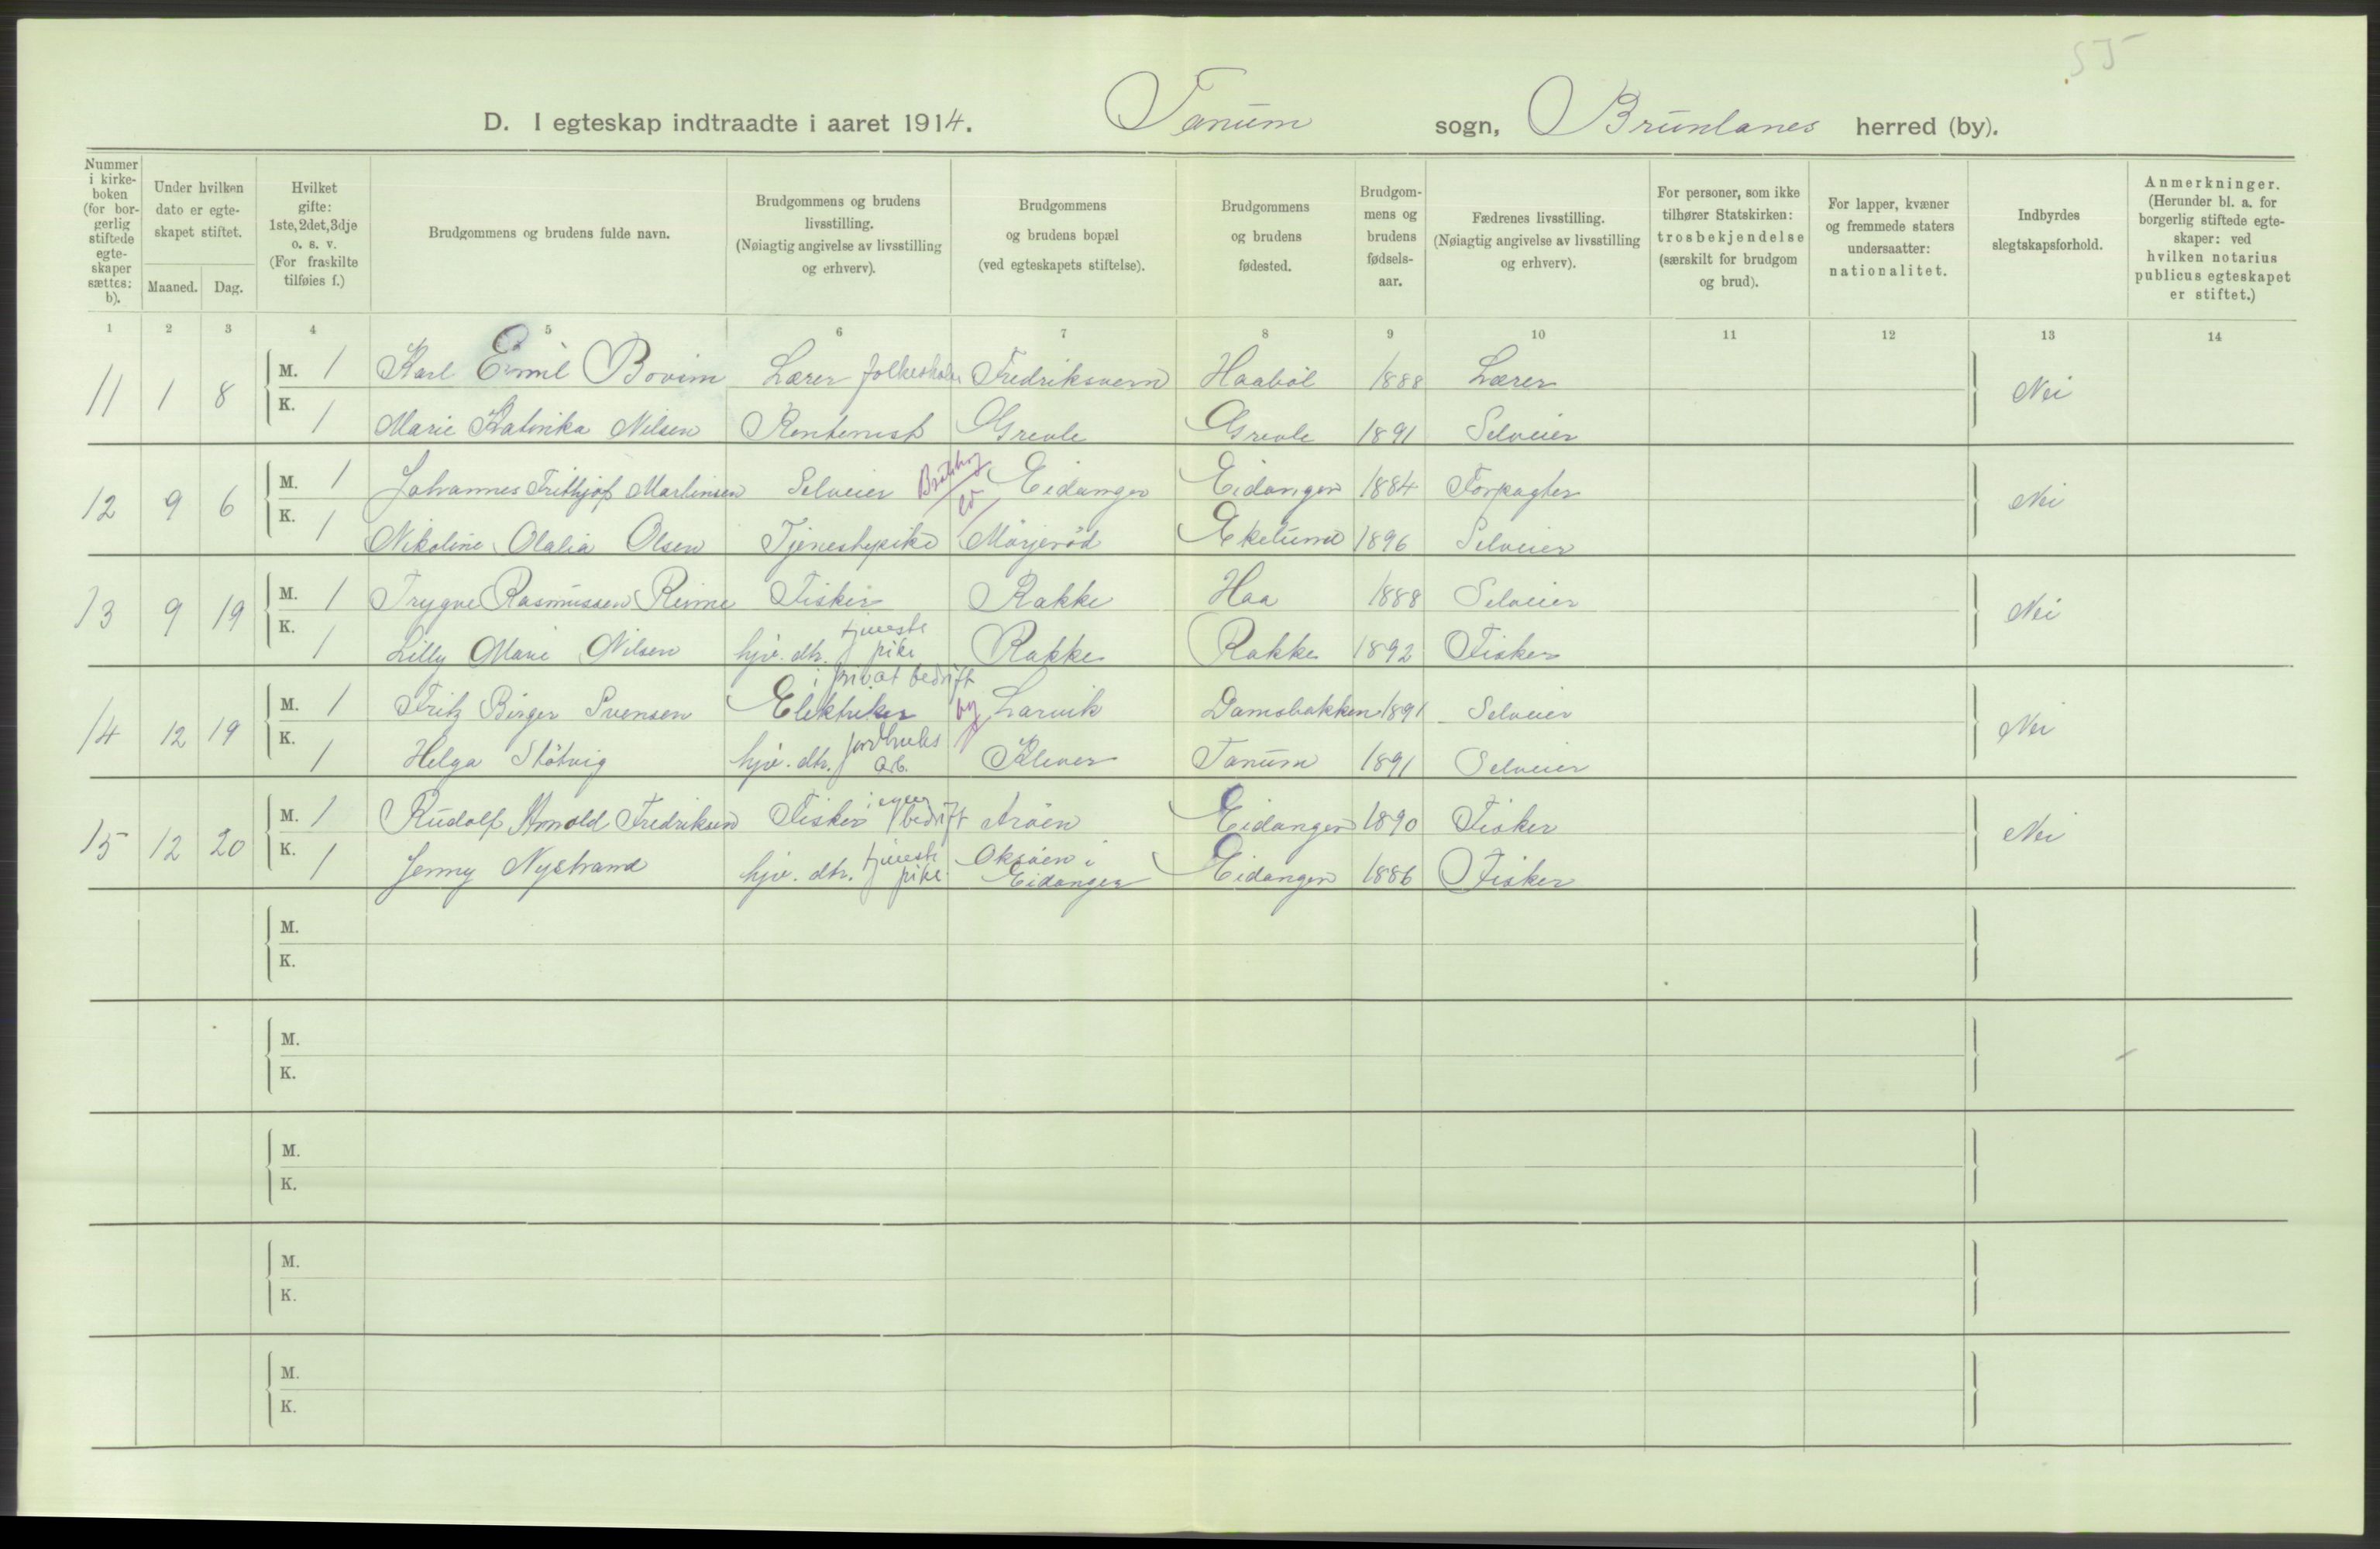 55
D. I egteskap indtraadte i aaret 1914. Tanum sogn, Brunlanes herred (by).
Nummer i kirkeboken (for borgerlig stiftede egteskaper sættes: b).
Under hvilken dato er egteskapet stiftet.
Maaned. Dag.
Hvilket gifte: 1ste, 2det, 3dje o. s. v. (For fraskilte tilføies f.)
Brudgommens og brudens fulde navn.
Brudgommens og brudens livsstilling. (Nøiagtig angivelse av livsstilling og erhverv).
Brudgommens og brudens bopæl (ved egteskapets stiftelse).
Brudgommens og brudens fødested.
Brudgommens og brudens fødselsaar.
Fædrenes livsstilling. (Nøiagtig angivelse av livsstilling og erhverv).
For personer, som ikke tilhører Statskirken: trosbekjendelse (særskilt for brudgom og brud).
For lapper, kvæner og fremmede staters undersaatter: nationalitet.
Indbyrdes slegtskapsforhold.
Anmerkninger. (Herunder bl. a. for borgerlig stiftede egteskaper: ved hvilken notarius publicus egteskapet er stiftet.)
1 2 3 4 5 6 7 8 9 10 11 12 13 14
11 1 8 M. 1 Karl Emil Bovim Lærer folkeskolen Fredriksvern Haabøl 1888 Lærer Nei
K. 1 Marie Katinka Nilsen Rentenist Grevle Grevle 1891 Selveier
12 9 6 M. 1 Johannes Frithjof Martinsen Selveier Bratsberg Eidanger Eidanger 1884 Forpagter Nei
K. 1 Nikoline Olalia Olsen Tjenestepike Mørjerød Ekelund 1896 Selveier
13 9 19 M. 1 Trygve Rasmussen Reime Fisker Rakke Haa 1888 Selveier Nei
K. 1 Lilly Marie Nilsen hjv. dtr. tjeneste pike Rakke Rakke 1892 Fisker
14 12 19 M. 1 Fritz Birger Svensen Elektriker i privat bedrift by Larvik Damsbakken 1891 Selveier Nei
K. 1 Helga Støtvig hjv. dtr. jordbruks arb. Klever Tanum 1891 Selveier
15 12 20 M. 1 Rudolf Arnold Fredriksen Fisker i egen bedrift Arøen Eidanger 1890 Fisker Nei
K. 1 Jenny Nystrand hjv. dtr. tjeneste pike Oksøen i Eidanger Eidanger 1886 Fisker
M.
K.
M.
K.
M.
K.
M.
K.
M.
K.